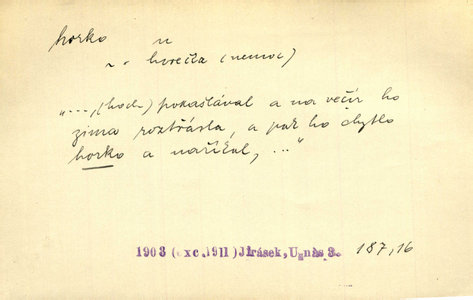 horko n
~ horečka (nemoc)
"..., (hoch) pokašlával a na večír ho
zima roztřásla, a pak ho chytlo
horko a naříkal, ..."
1903 (exc.1911) Jirásek, U nás 3. 187,16